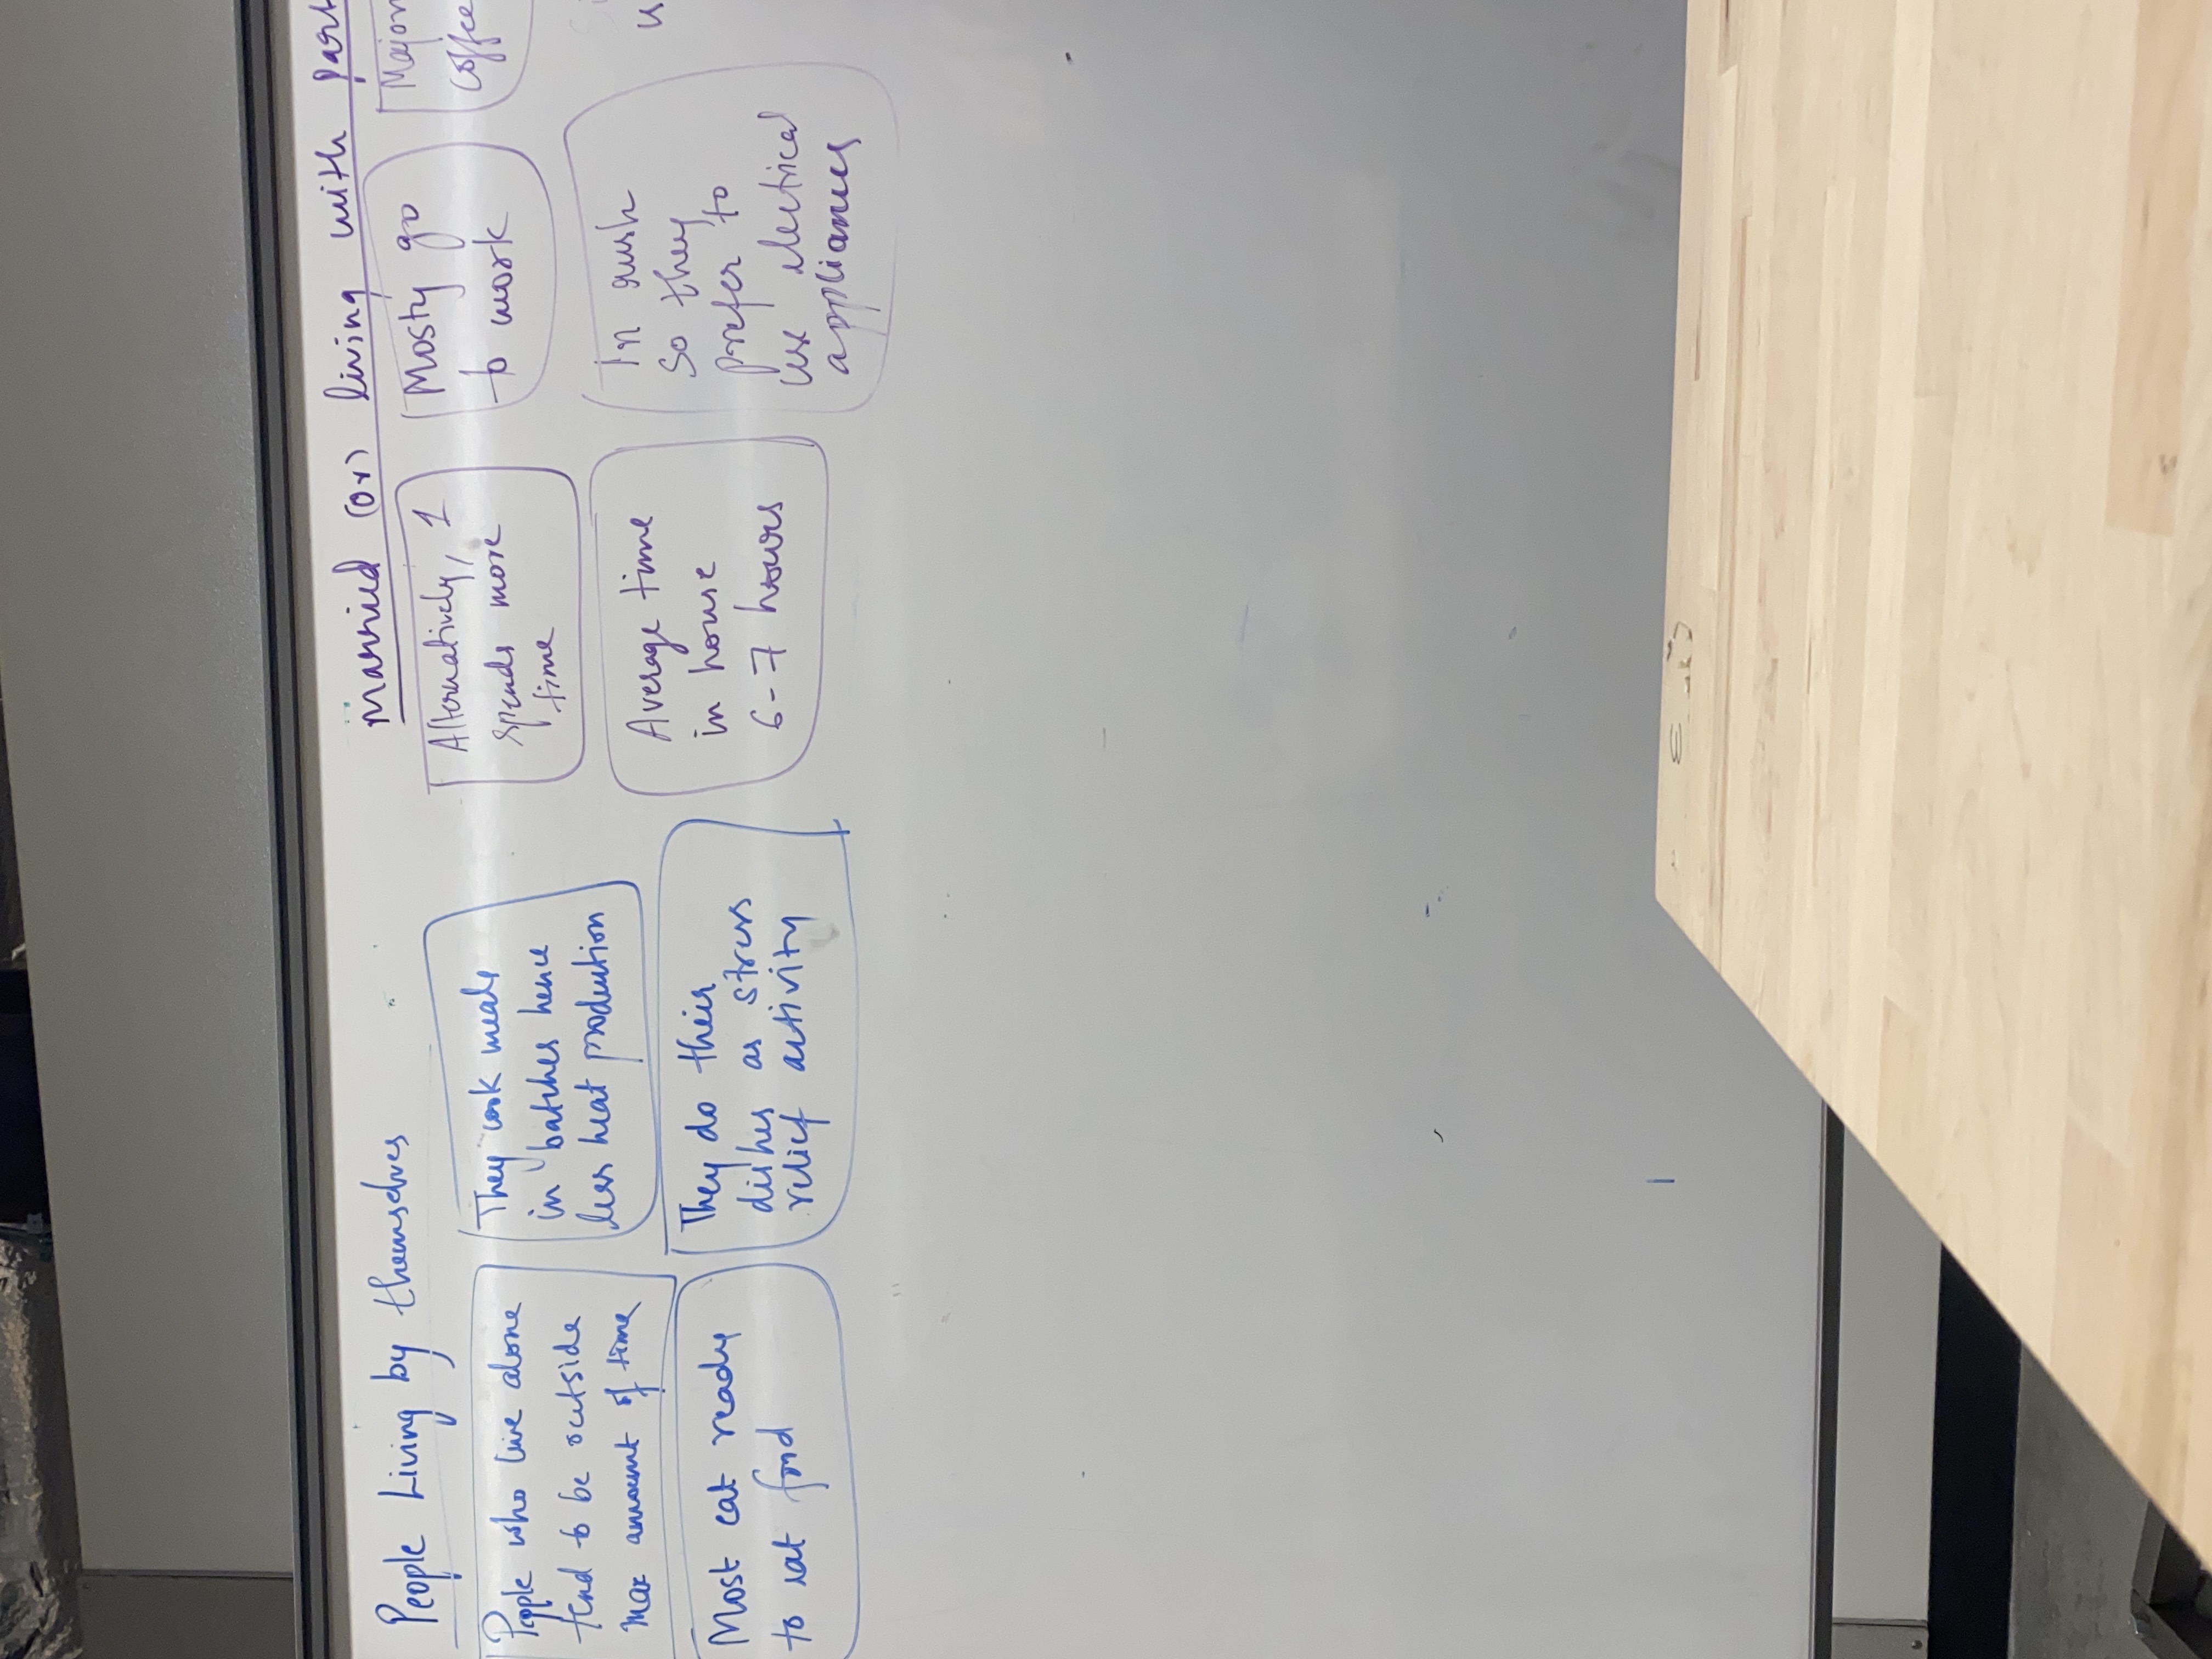 People Living by themselves
People who live alone
tend to be outside
max amount of time
They cook meals
in batches hence
less heat production
Most eat ready
to eat food
They do their
dishes as stress
relief activity
Married (or) living with part
Alternatively, 1
spends more
time
Mosty go
to work
Major
coffee
Average time
in house
6-7 hours
In rush
so they
prefer to
use electrical
appliances
us